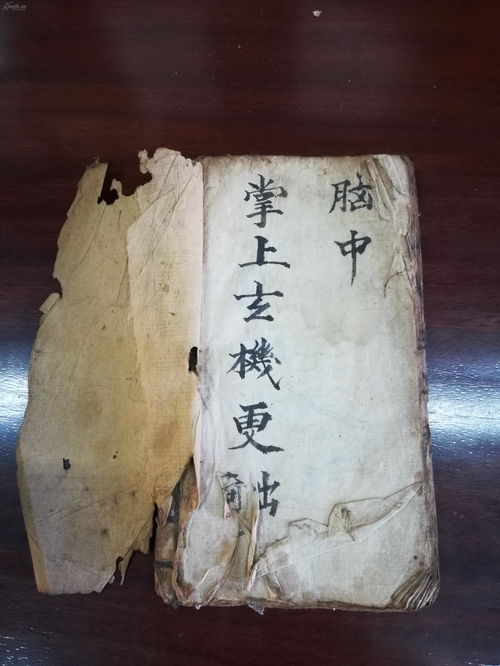 脑中
掌上玄機更出